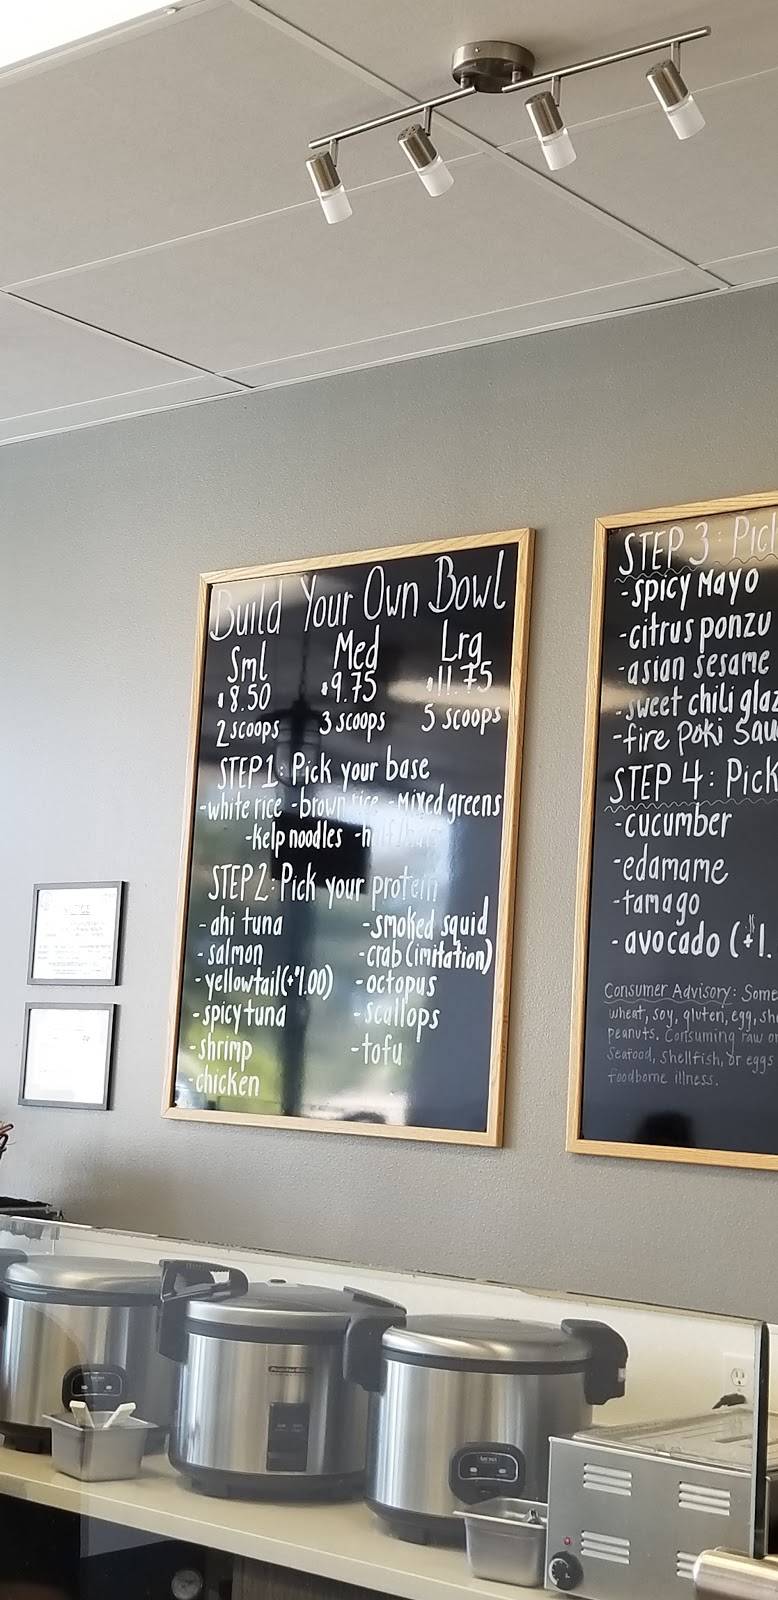 Build Your Own Bowl
Sml Med Lrg
$8.50 $9.75 $11.75
2 scoops 3 scoops 5 scoops
STEP 1: Pick your base
-white rice -brown rice -Mixed greens
-kelp noodles -half/half
STEP 2: Pick your protein
- ahi tuna -smoked squid
- salmon -crab (imitation)
- yellowtail(+$1.00) -octopus
- spicy tuna - scallops
-shrimp -tofu
-chicken
STEP 3: Pick
-spicy Mayo
-citrus ponzu
-asian sesame
-sweet chili glaz
-fire Poki Sau
STEP 4: Pick
-cucumber
-edamame
-tamago
- avocado (+$1.
Consumer Advisory: Some
wheat, soy, gluten, egg, she
peanuts. Consuming raw or
seafood, shellfish, or eggs
foodborne illness.